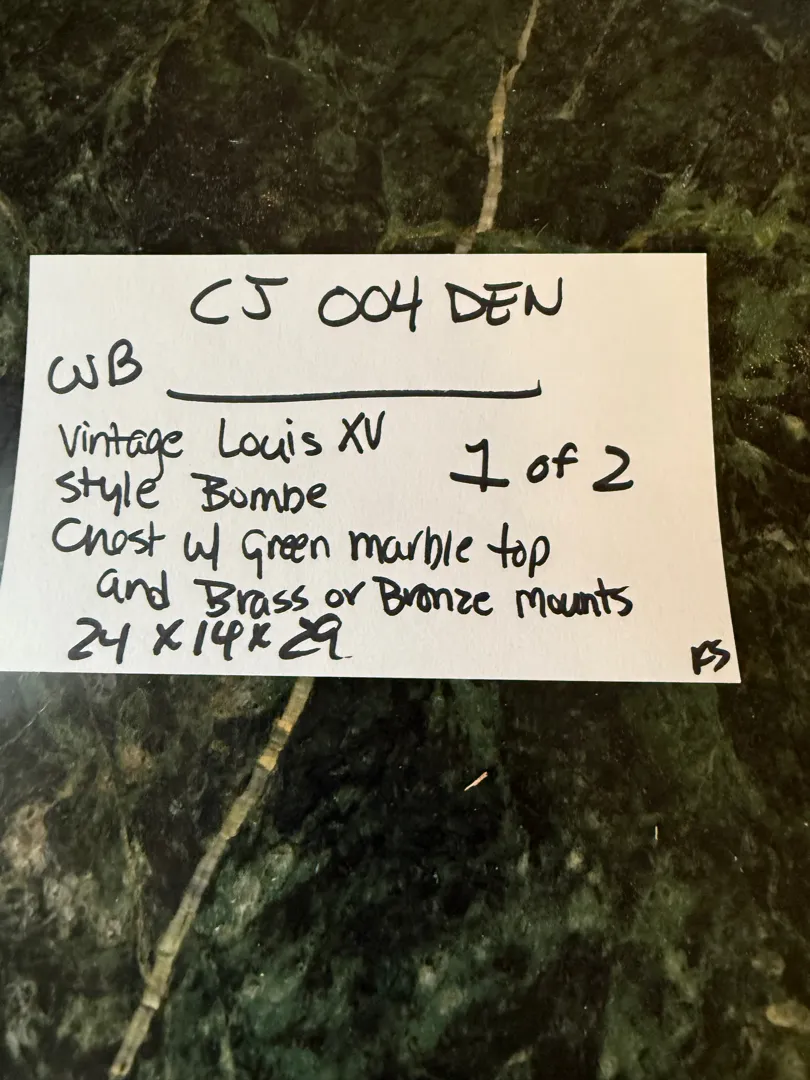 CJ 004 DEN
WB
Vintage Louis XV
Style Bombe
1 of 2
Chest w/ Green marble top
and Brass or Bronze Mounts
24 x 14 x 29
KS